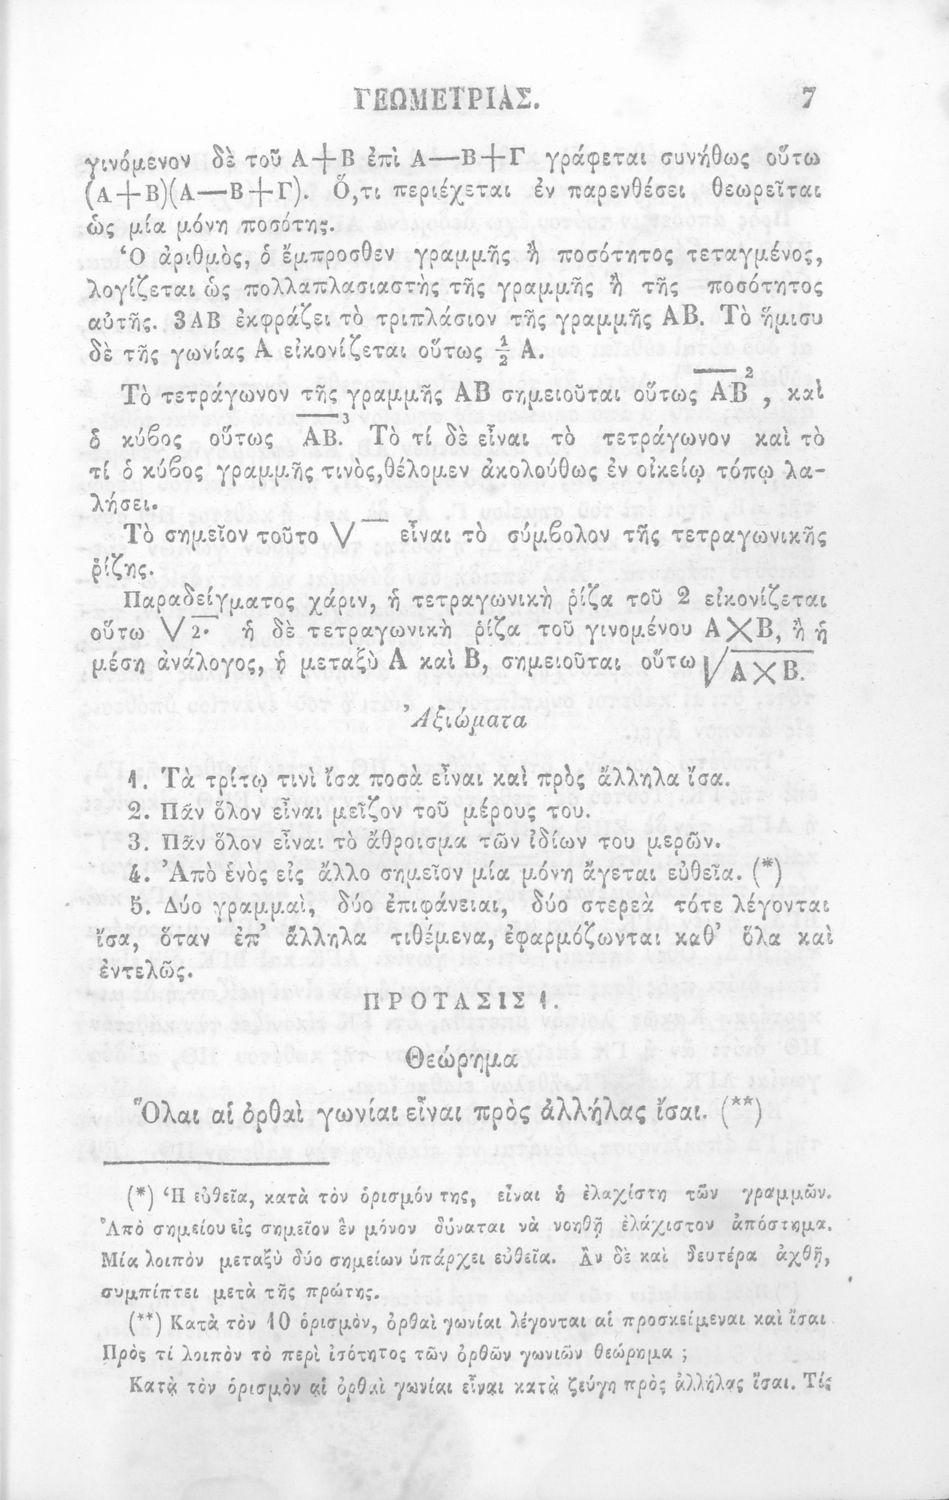 ΓΕΩΜΕΤΡΙΑΣ. 7
γινόμενον δὲ τοῦ Α+Β ἐπὶ Α—Β+Γ γράφεται συνήθως οὕτω
(Α+Β)(Α—Β+Γ). Ὅ,τι περιέχεται ἐν παρενθέσει θεωρεῖται
ὡς μία μόνη ποσότης.
Ὁ ἀριθμὸς, ὁ ἔμπροσθεν γραμμῆς ἢ ποσότητος τεταγμένος,
λογίζεται ὡς πολλαπλασιαστὴς τῆς γραμμῆς ἢ τῆς ποσότητος
αὐτῆς. 3ΑΒ ἐκφράζει τὸ τριπλάσιον τῆς γραμμῆς ΑΒ. Τὸ ἥμισυ
δὲ τῆς γωνίας Α εἰκονίζεται οὕτως ½ Α.
Τὸ τετράγωνον τῆς γραμμῆς ΑΒ σημειοῦται οὕτως Α͞Β², καὶ
ὁ κύβος οὕτως Α͞Β³. Τὸ τί δὲ εἶναι τὸ τετράγωνον καὶ τὸ
τί ὁ κύβος γραμμῆς τινὸς,θέλομεν ἀκολούθως ἐν οἰκείῳ τόπῳ λα-
λήσει.
Τὸ σημεῖον τοῦτο √‾ εἶναι τὸ σύμβολον τῆς τετραγωνικῆς
ῥίζης.
Παραδείγματος χάριν, ἡ τετραγωνικὴ ῥίζα τοῦ 2 εἰκονίζεται
οὕτω √2· ἡ δὲ τετραγωνικὴ ῥίζα τοῦ γινομένου Α×Β, ἢ ἡ
μέση ἀνάλογος, ἡ μεταξὺ Α καὶ Β, σημειοῦται οὕτω √Α×Β.
Ἀξιώματα
1. Τὰ τρίτῳ τινὶ ἴσα ποσὰ εἶναι καὶ πρὸς ἄλληλα ἴσα.
2. Πᾶν ὅλον εἶναι μεῖζον τοῦ μέρους του.
3. Πᾶν ὅλον εἶναι τὸ ἄθροισμα τῶν ἰδίων του μερῶν.
4. Ἀπὸ ἑνὸς εἰς ἄλλο σημεῖον μία μόνη ἄγεται εὐθεῖα. (*)
5. Δύο γραμμαὶ, δύο ἐπιφάνειαι, δύο στερεὰ τότε λέγονται
ἴσα, ὅταν ἐπ’ ἄλληλα τιθέμενα, ἐφαρμόζωνται καθ’ ὅλα καὶ
ἐντελῶς.
ΠΡΟΤΑΣΙΣ 1.
Θεώρημα
Ὅλαι αἱ ὀρθαὶ γωνίαι εἶναι πρὸς ἀλλήλας ἴσαι. (**)
(*) Ἡ εὐθεῖα, κατὰ τὸν ὁρισμόν της, εἶναι ἡ ἐλαχίστη τῶν γραμμῶν.
Ἀπὸ σημείου εἰς σημεῖον ἓν μόνον δύναται νὰ νοηθῇ ἐλάχιστον ἀπόστημα.
Μία λοιπὸν μεταξὺ δύο σημείων ὑπάρχει εὐθεῖα. Ἂν δὲ καὶ δευτέρα ἀχθῇ,
συμπίπτει μετὰ τῆς πρώτης.
(**) Κατὰ τὸν 10 ὁρισμὸν, ὀρθαὶ γωνίαι λέγονται αἱ προσκείμεναι καὶ ἴσαι
Πρὸς τί λοιπὸν τὸ περὶ ἰσότητος τῶν ὀρθῶν γωνιῶν θεώρημα ;
Κατὰ τὸν ὁρισμὸν αἱ ὀρθαὶ γωνίαι εἶναι κατὰ ζεύγη πρὸς ἀλλήλας ἴσαι. Τίς